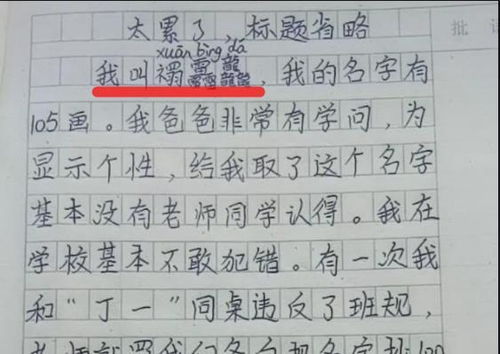 太累了，标题省略
xuān bìng dá
我叫禤靐龘，我的名字有
105画。我爸爸非常有学问，为
显示个性，给我取了这个名字
基本没有老师同学认得。我在
学校基本不敢犯错。有一次我
和“丁一”同桌违反了班规，
老师就罚我们各自把名字抄100
批